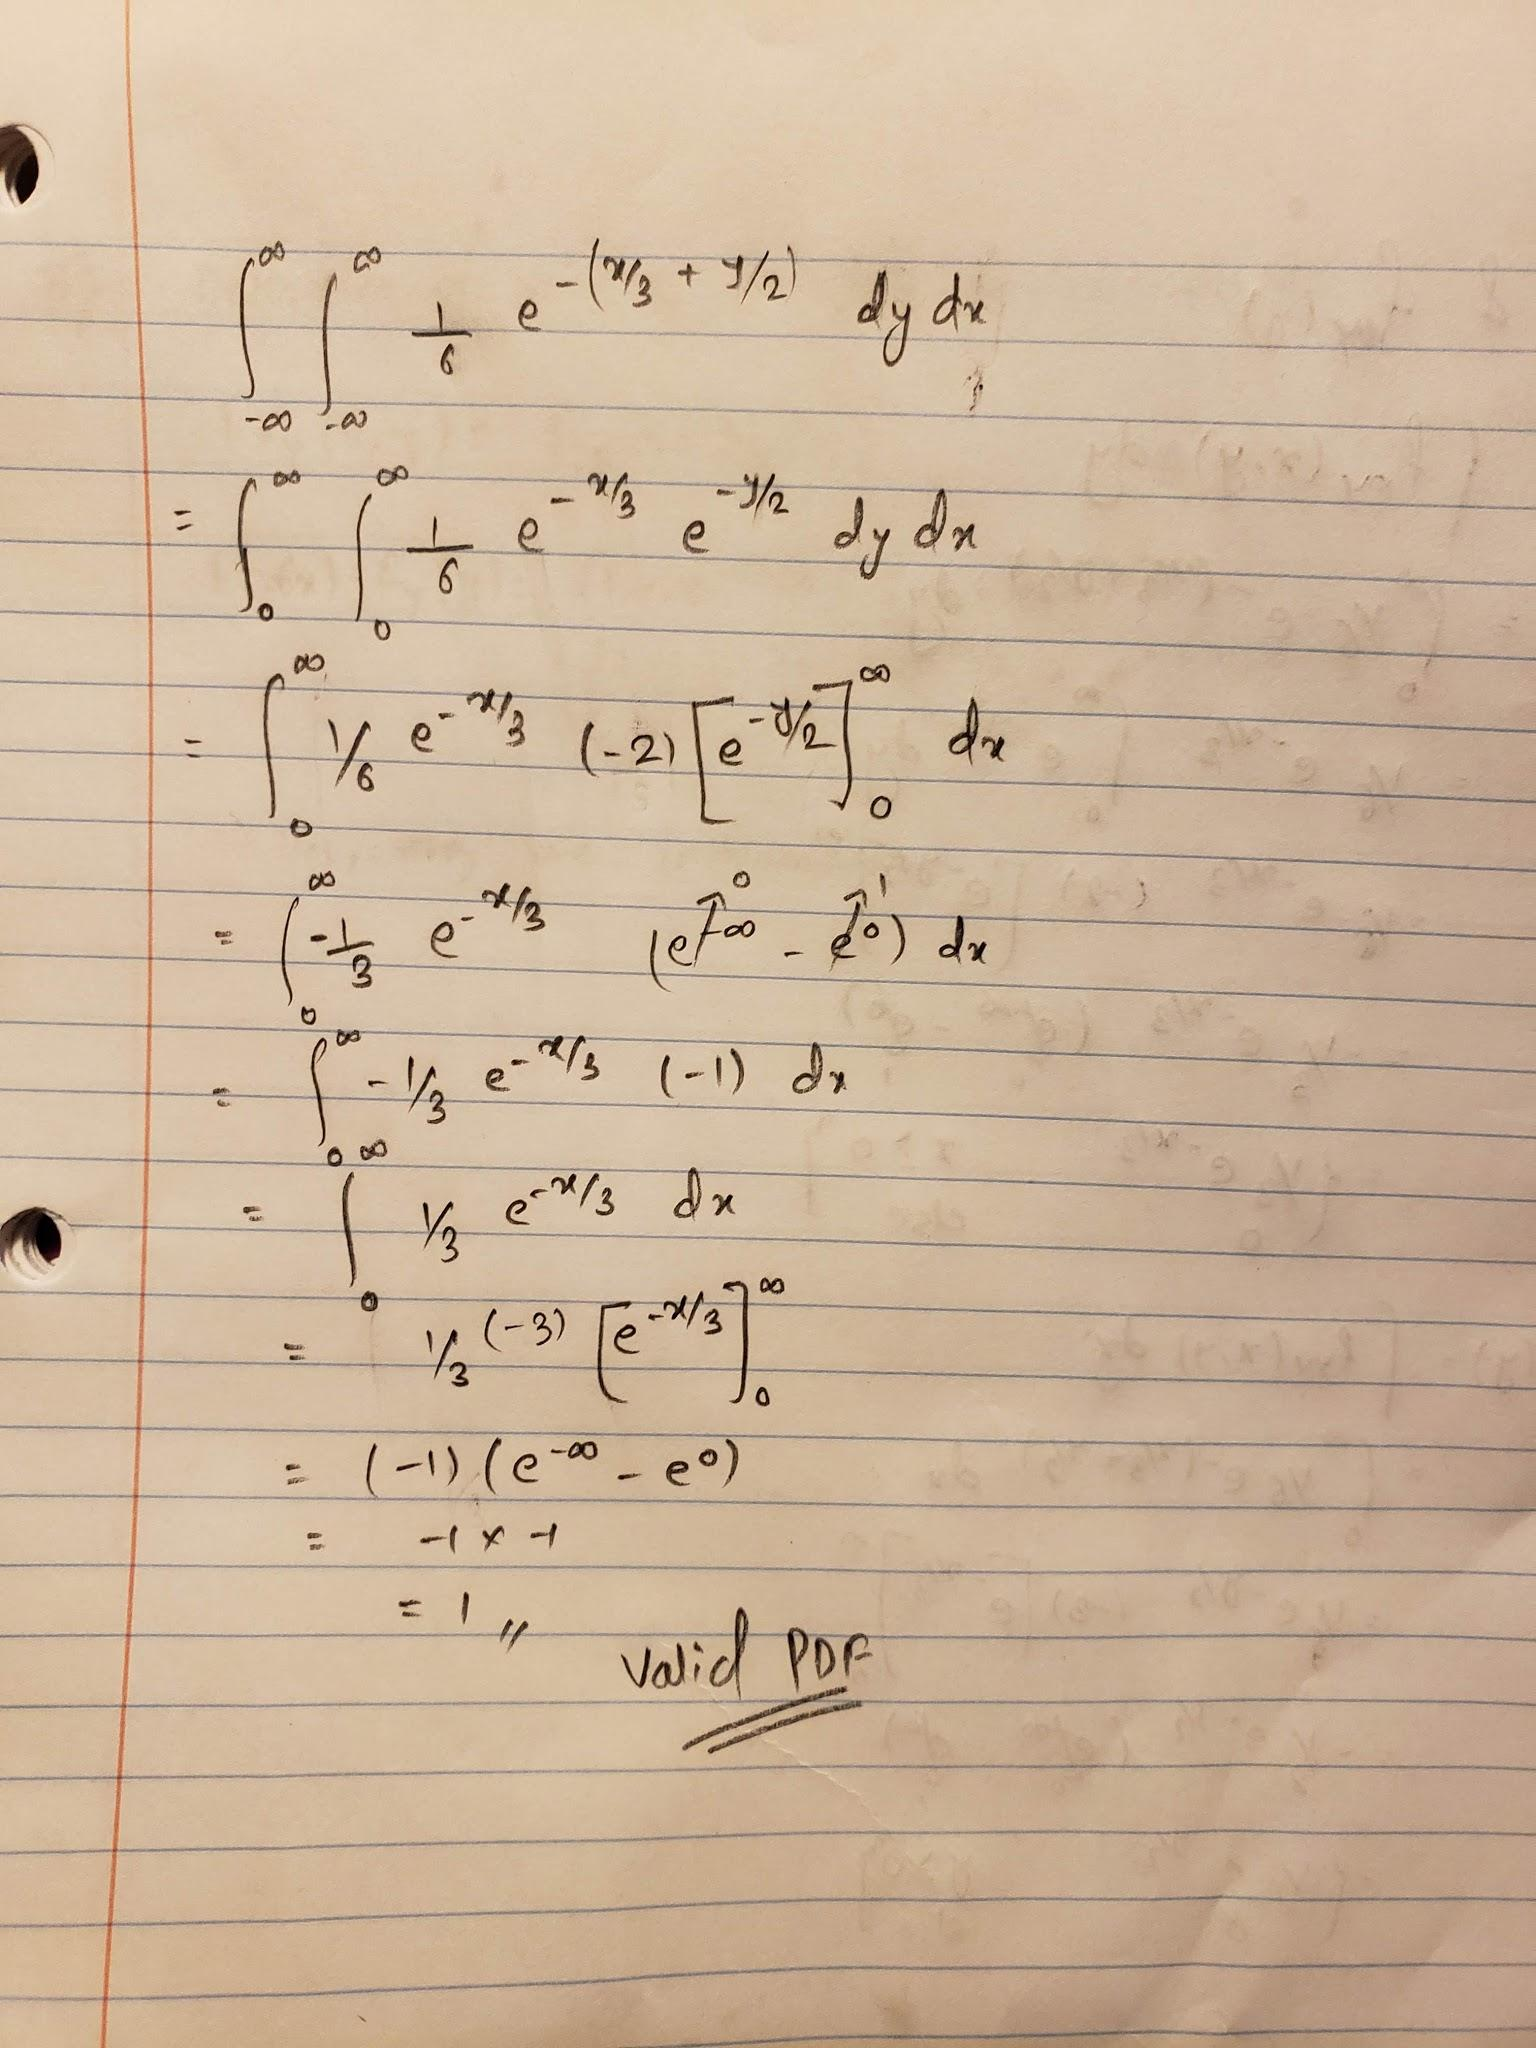 ∫_{-∞}^{∞} ∫_{-∞}^{∞} 1/6 e^{-(x/3 + y/2)} dy dx
= ∫_0^∞ ∫_0^∞ 1/6 e^{-x/3} e^{-y/2} dy dx
= ∫_0^∞ 1/6 e^{-x/3} (-2) [e^{-y/2}]_0^∞ dx
= ∫_0^∞ -1/3 e^{-x/3} (e^{-∞}↗0 - e^0↗1) dx
= ∫_0^∞ -1/3 e^{-x/3} (-1) dx
= ∫_0^∞ 1/3 e^{-x/3} dx
= 1/3 (-3) [e^{-x/3}]_0^∞
= (-1) (e^{-∞} - e^0)
= -1 x -1
= 1 〃
Valid PDF